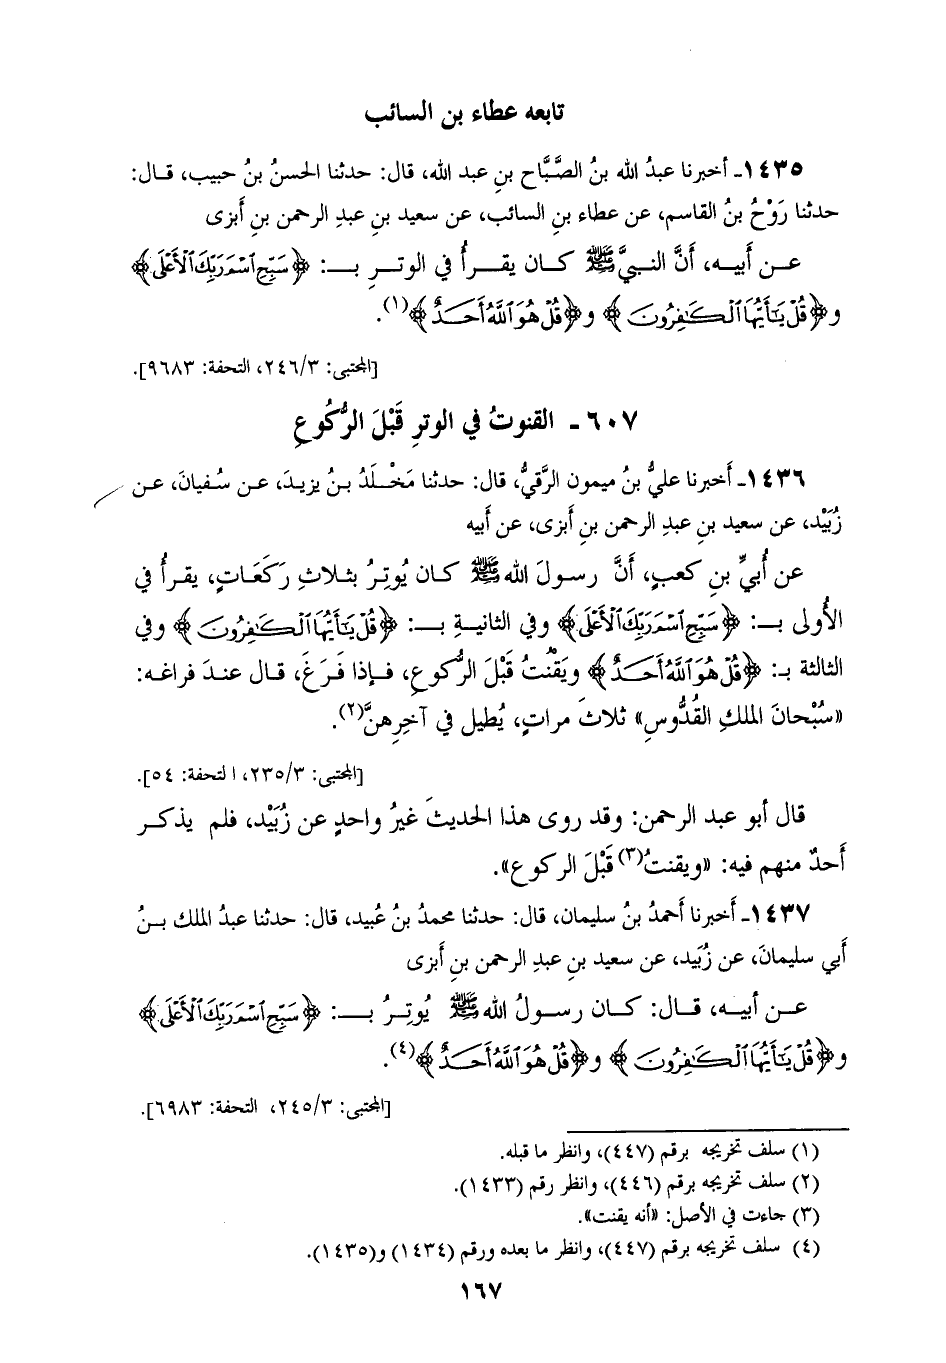 تابعه عطاء بن السائب
١٤٣٥ـ أخبرنا عبدُ الله بنُ الصَّبَّاح بنِ عبد الله، قال: حدثنا الحسنُ بنُ حبيب، قال:
حدثنا رَوْحُ بنُ القاسم، عن عطاء بنِ السائب، عن سعيد بنِ عبدِ الرحمن بنِ أبزى
عن أبيه، أنَّ النبيَّ ﷺ كان يقرأُ في الوترِ بـ: ﴿سَبِّحِ ٱسْمَ رَبِّكَ ٱلْأَعْلَى﴾
و﴿قُلْ يَٰٓأَيُّهَا ٱلْكَٰفِرُونَ﴾ و﴿قُلْ هُوَ ٱللَّهُ أَحَدٌ﴾(١).
[المجتبى: ٢٤٦/٣، التحفة: ٩٦٨٣].
٦٠٧ ـ القنوتُ في الوترِ قَبْلَ الرُّكُوعِ
١٤٣٦ـ أَخبرنا عليُّ بنُ ميمون الرَّقيُّ، قال: حدثنا مَخْلَدُ بنُ يزيدَ، عن سُفيانَ، عن
زُبَيْد، عن سعيد بنِ عبدِ الرحمن بنِ أَبزى، عن أَبيه
عن أُبيِّ بنِ كعبٍ، أَنَّ رسولَ الله ﷺ كان يُوتِرُ بثلاثِ رَكَعَاتٍ، يقرأُ في
الأُولى بـ: ﴿سَبِّحِ ٱسْمَ رَبِّكَ ٱلْأَعْلَى﴾ وفي الثانيةِ بـ: ﴿قُلْ يَٰٓأَيُّهَا ٱلْكَٰفِرُونَ﴾ وفي
الثالثة بـ: ﴿قُلْ هُوَ ٱللَّهُ أَحَدٌ﴾ ويَقْنُتُ قَبْلَ الرُّكوعِ، فإذا فَرَغَ، قال عندَ فراغه:
«سُبْحانَ الملكِ القُدُّوسِ» ثلاثَ مراتٍ، يُطيل في آخِرِهنَّ(٢).
[المجتبى: ٢٣٥/٣، التحفة: ٥٤].
قال أبو عبد الرحمن: وقد روى هذا الحديثَ غيرُ واحدٍ عن زُبَيْد، فلم يذكر
أَحدٌ منهم فيه: «ويقنتُ(٣) قَبْلَ الركوع».
١٤٣٧ـ أَخبرنا أَحمدُ بنُ سليمان، قال: حدثنا محمدُ بنُ عُبيد، قال: حدثنا عبدُ الملك بنُ
أبي سليمانَ، عن زُبَيد، عن سعيد بنِ عبدِ الرحمن بنِ أَبزى
عن أبيه، قال: كان رسولُ الله ﷺ يُوتِرُ بـ: ﴿سَبِّحِ ٱسْمَ رَبِّكَ ٱلْأَعْلَى﴾
و﴿قُلْ يَٰٓأَيُّهَا ٱلْكَٰفِرُونَ﴾ و﴿قُلْ هُوَ ٱللَّهُ أَحَدٌ﴾(٤).
[المجتبى: ٢٤٥/٣، التحفة: ٦٩٨٣].
(١) سلف تخريجه برقم (٤٤٧)، وانظر ما قبله.
(٢) سلف تخريجه برقم (٤٤٦)، وانظر رقم (١٤٣٣).
(٣) جاءت في الأصل: «أنه يقنت».
(٤) سلف تخريجه برقم (٤٤٧)، وانظر ما بعده ورقم (١٤٣٤) و(١٤٣٥).
١٦٧